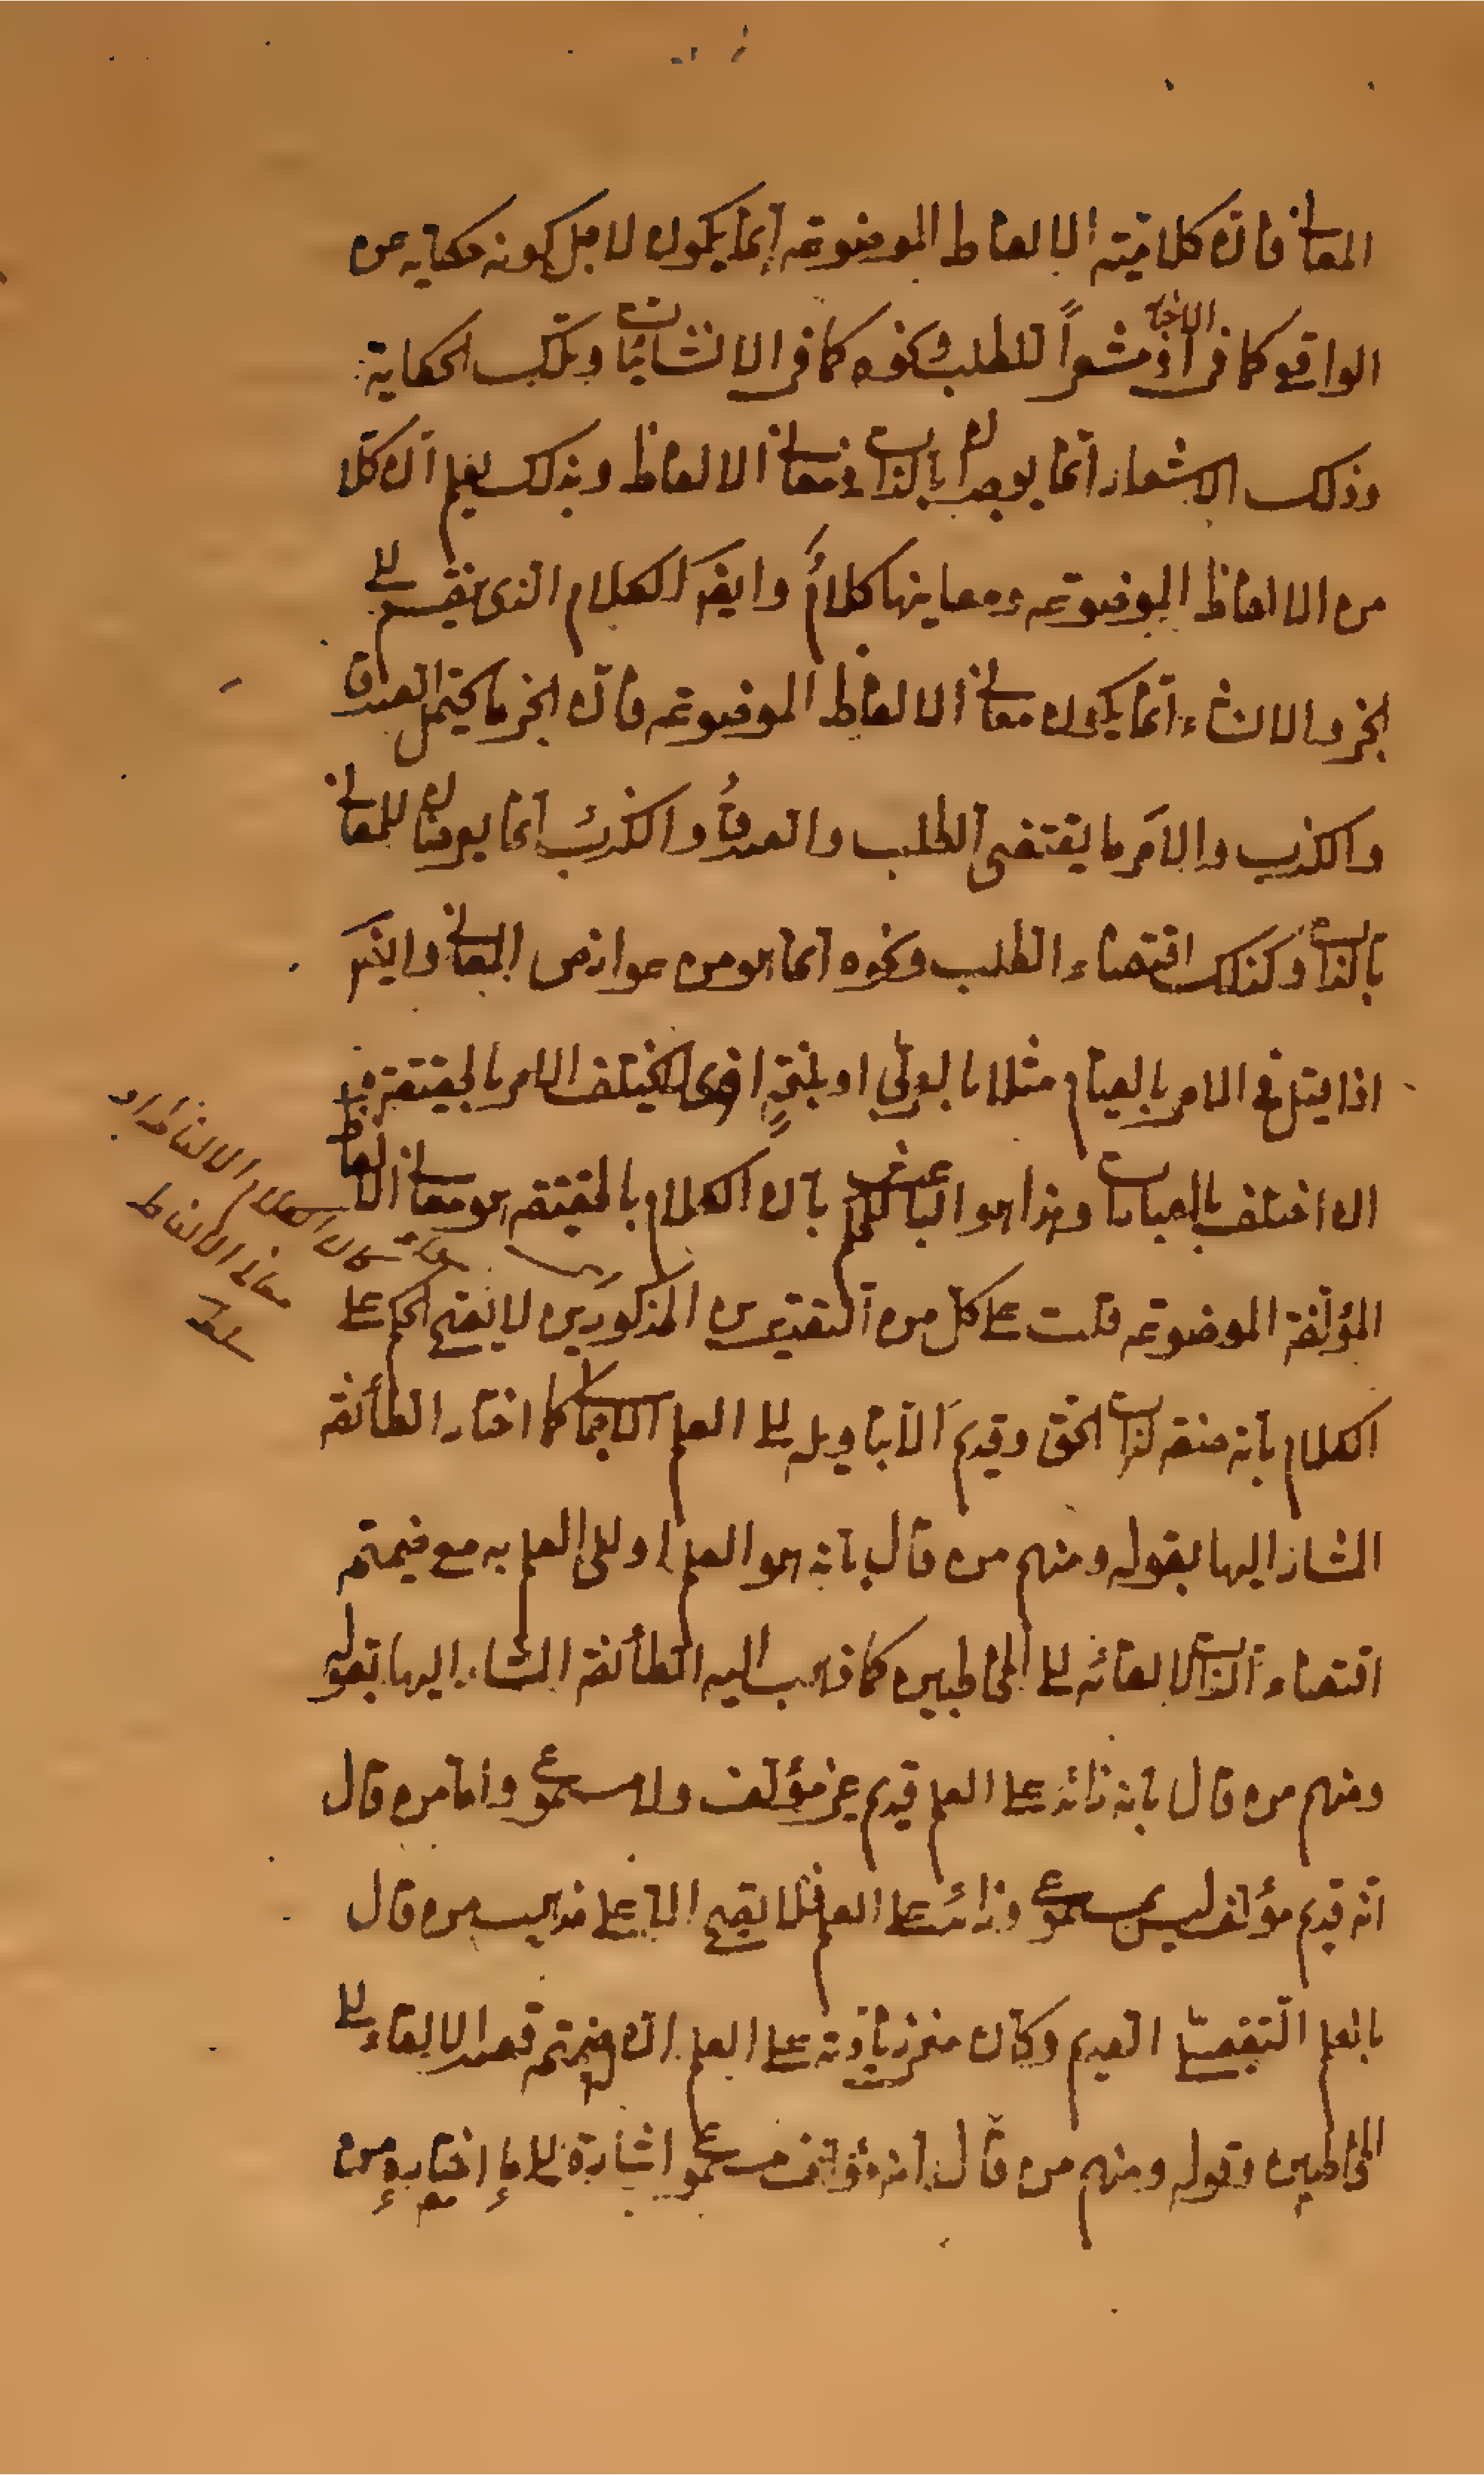 المعاني فان كلاميته الالفاظ الموضوعه انما يكون لاجل كونه حكايه عن
الواقع كما في الاخبار او مشعراً للطلب ونحوه كما في الانشائيات وتلك الحكاية
وذلك الاشعار انما يوجدان بالذات في معاني الالفاظ وبذلك يعلم ان كلا
من الالفاظ الموضوعه ومعاينها كلامٌ وايضا الكلام الذي ينقسم الى
الخبر والانشاء انما يكون معاني الالفاظ الموضوعه فان الخبر ما يحتمل الصدق
والكذب والامر ما يقتضى الطلب والصدق والكذب انما يعرضان للمعاني
بالذات وكذلك اقتضاء الطلب ونحوه انما هو من عوارض المعاني وايضا
اذا قيل في الامر بالصيام مثلا بالعربي او بلغةٍ اخرى لا يختلف الامر بالحقيقة
ان اختلف بالعبارات وهذا هو الباعث للحكم بان الكلام بالحقيقه هو معاني الالفاظ
المؤلفة الموضوعه قلت على كل من التقديرين المذكورين لا يصح الحكم على
الكلام بانه صفة لذات الحق وقديم الا بتاويله الى العلم الاجمالى كما اختار الطائفة
المشار اليها بقوله ومنهم من قال بانه هو العلم او الى العلم به مع ضميمة
اقتضاء الذات لالقائه الى المخاطبين كما ذهب اليه الطائفة المشار اليها بقوله
ومنهم من قال بانه زائد على العلم قديم غير مؤلف ولا مسموع واما من قال
انه قديم مؤلف ليس بمسموع وزائد على العلم فلا يصح الا على مذهب من قال
بالعلم التفصيلى القديم وكان معنى زيادته على العلم ان ضميمته قصد الالقاء الى
المخاطبين وقوله ومنهم من قال انه مؤلف مسموع اشارة الى ما اختاره من
سواء كان الكلام الالفاظ او
معاني الالفاظ